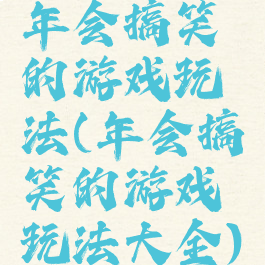 年会搞笑
的游戏玩
法(年会搞
笑的游戏
玩法大全)